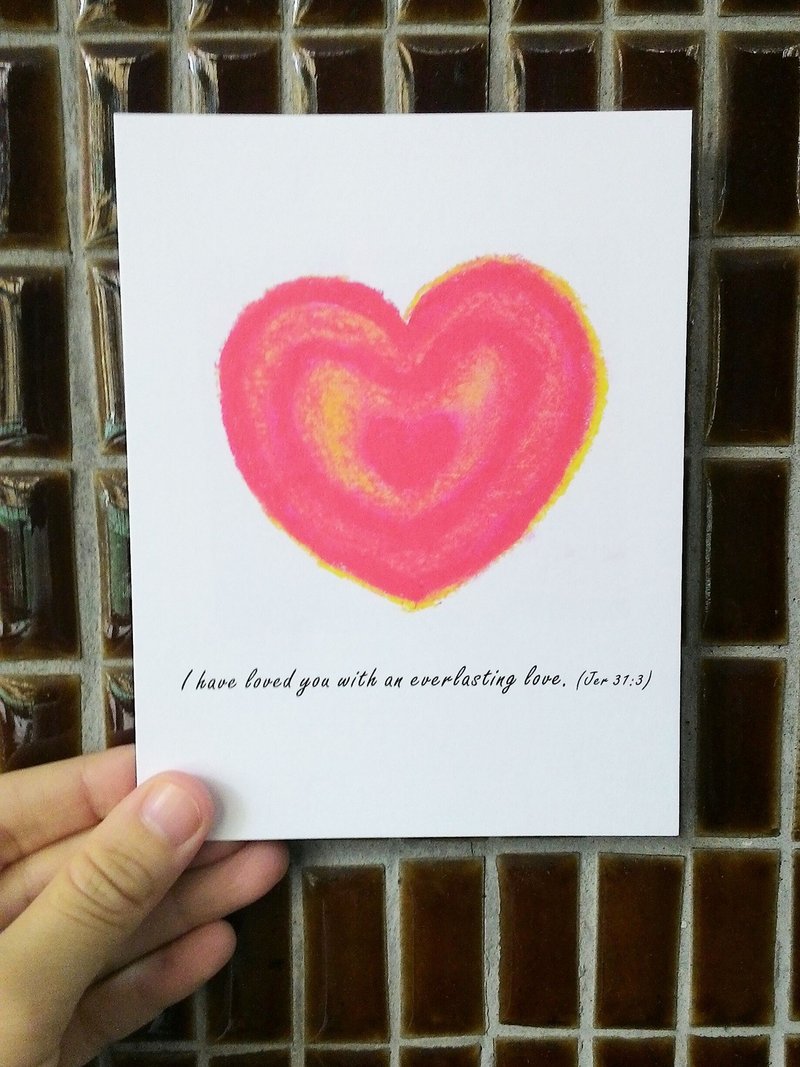 I have loved you with an everlasting love. (Jer 31:3)